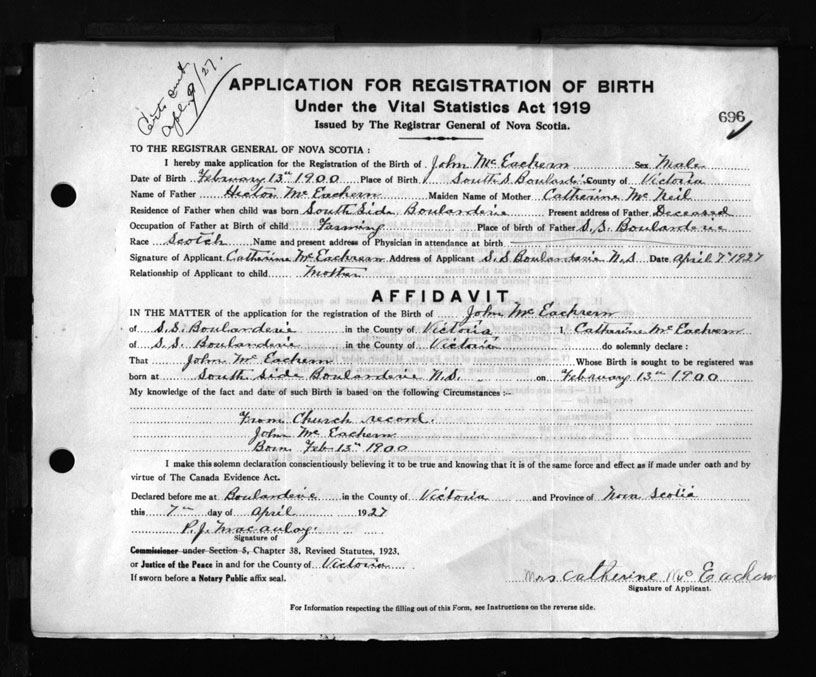 Certs sent
Apl. 9/27.
APPLICATION FOR REGISTRATION OF BIRTH
Under the Vital Statistics Act 1919
Issued by The Registrar General of Nova Scotia.
696
TO THE REGISTRAR GENERAL OF NOVA SCOTIA :
I hereby make application for the Registration of the Birth of John McEachern Sex Male
Date of Birth February 13th 1900 Place of Birth South S. Boularderie County of Victoria
Name of Father Hector McEachern Maiden Name of Mother Catherine McNeil
Residence of Father when child was born South Side Boularderie Present address of Father Deceased
Occupation of Father at Birth of child Farming Place of birth of Father S.S. Boularderie
Race Scotch Name and present address of Physician in attendance at birth
Signature of Applicant Catherine McEachern Address of Applicant S.S Boularderie N.S Date April 7th 1927
Relationship of Applicant to child Mother
AFFIDAVIT
IN THE MATTER of the application for the registration of the Birth of John McEachern
of S.S. Boularderie in the County of Victoria I, Catherine McEachern
of S.S. Boularderie in the County of Victoria do solemnly declare :
That John McEachern Whose Birth is sought to be registered was
born at South Side Boularderie N.S. on February 13th 1900
My knowledge of the fact and date of such Birth is based on the following Circumstances :-
From Church record.
John McEachern
Born Feb 13th 1900
I make this solemn declaration conscientiously believing it to be true and knowing that it is of the same force and effect as if made under oath and by
virtue of The Canada Evidence Act.
Declared before me at Boularderie in the County of Victoria and Province of Nova Scotia
this 7th day of April 1927
P.J. Macaulay.
Signature of
Commissioner under Section 5, Chapter 38, Revised Statutes, 1923,
or Justice of the Peace in and for the County of Victoria
If sworn before a Notary Public affix seal.
Mrs Catherine McEachern
Signature of Applicant.
For Information respecting the filling out of this Form, see Instructions on the reverse side.